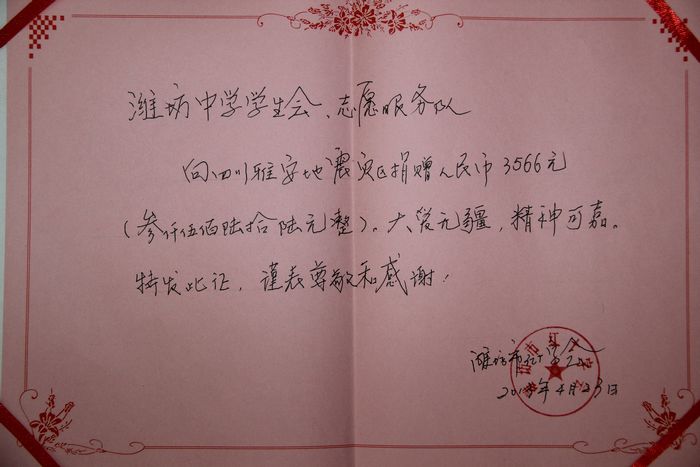 潍坊中学学生会、志愿服务队
向四川雅安地震灾区捐赠人民币3566元
(叁仟伍佰陆拾陆元整)。大爱无疆,精神可嘉。
特发此证,谨表尊敬和感谢!
潍坊市红十字会
年4月23日